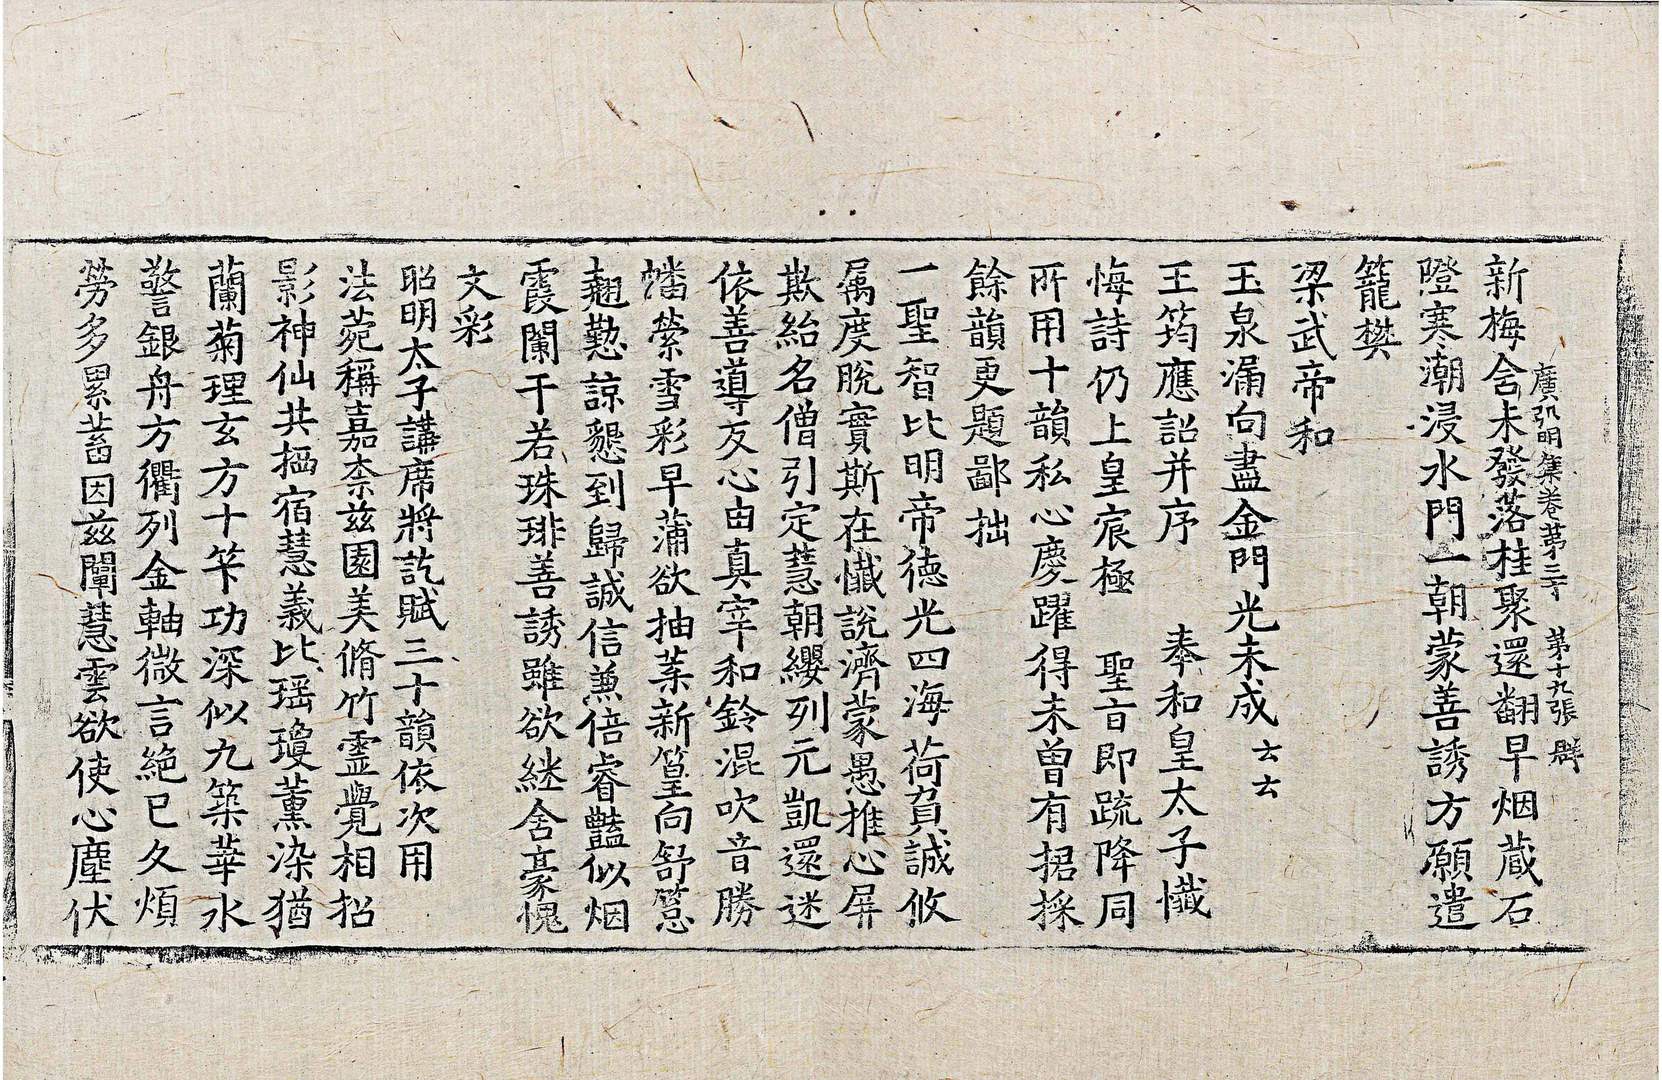 廣弘明集卷第三十 第十九張 群
新梅舍未發落桂聚還翻早烟藏石
隥寒潮浸水門一朝蒙善誘方願遣
籠樊
梁武帝和
玉泉漏向盡金門光未成云云
王筠應詔并序 奉和皇太子懺
悔詩仍上皇宸極 聖旨即疏降同
所用十韻私心慶躍得未曾有捃採
餘韻更題鄙拙
一聖智比明帝德光四海荷負誠攸
属度脫實斯在懺說濟蒙愚推心屏
欺紿名僧引定慧朝纓列元凱還迷
依善導反心由真宰和鈴混吹音勝
幡縈雪彩早蒲欲抽葉新篁向舒䈊
翹懃諒懇到歸誠信兼倍睿豔似烟
霞闌干若珠琲善誘雖欲継含豪愧
文彩
昭明太子講席將訖賦三十韻依次用
法菀稱嘉柰兹園美脩竹靈覺相招
影神仙共栖宿慧義比瑶瓊薰染猶
蘭菊理玄方十筞功深似九築華水
警銀舟方衢列金軸微言絕已久煩
勞多累蓄因兹闡慧雲欲使心塵伏